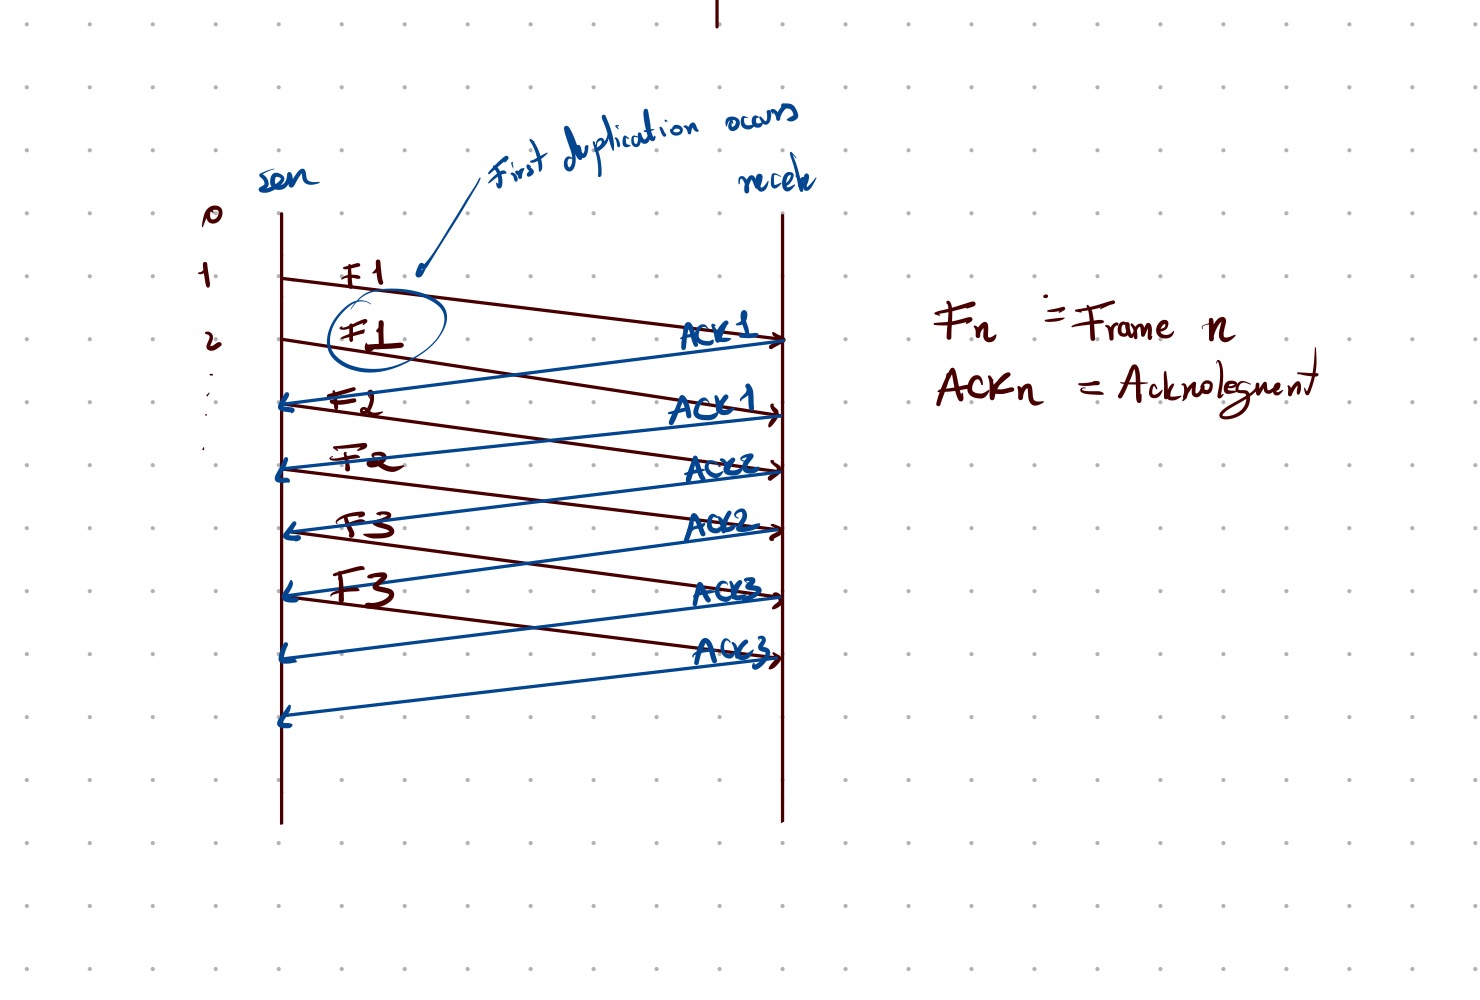 First duplication occurs
sen
recete
0
1
2
F1
F1
ACK1
F2
ACK1
F2
ACK2
F3
ACK2
F3
ACK3
ACK3
Fn = Frame n
ACKn = Acknolegment